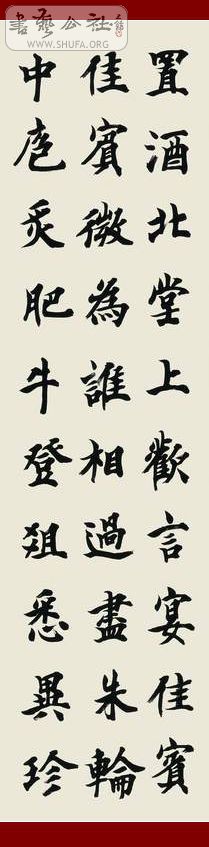 書藝公社
WWW.SHUFA.ORG
置酒北堂上歡言宴佳賓
佳賓微為誰相過盡朱輪
中庖炙肥牛登俎悉異珍